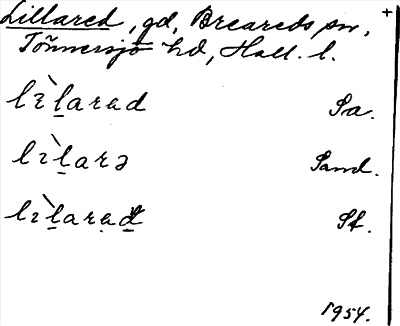 Lillared, gd, Breareds sn, +
Tönnersjö hd, Hall. l.
lìl̠arad Sa.
lìl̠arə Sand.
lìl̠arad̠ Sf.
1954.